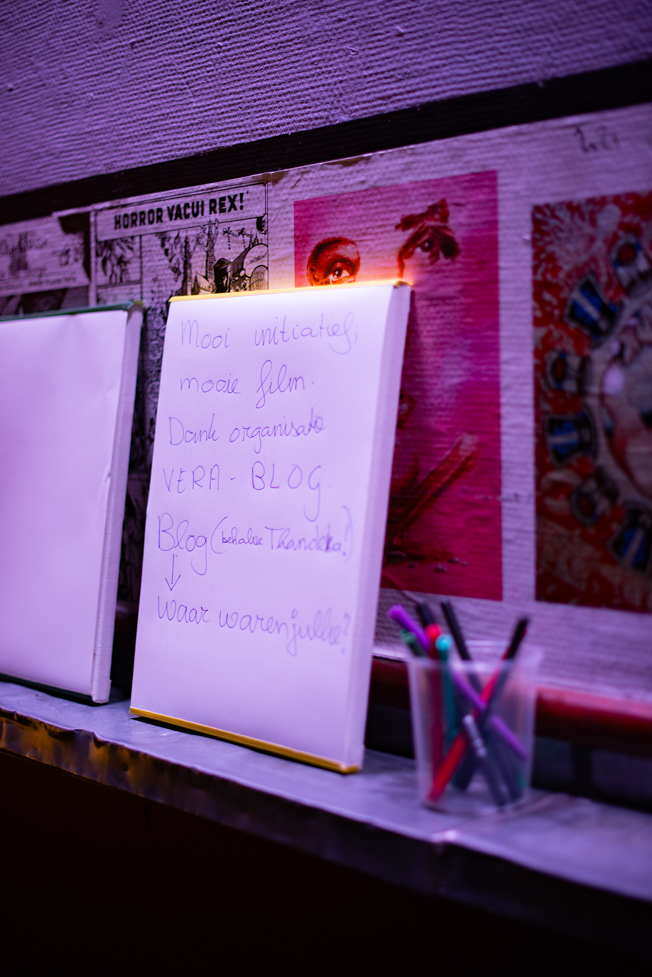 HORROR VACUI REX!
Mooi initiatief,
mooie film.
Dank organisatie
VERA - BLOG.
Blog (behalve Thandeka!)
↓
Waar waren jullie?